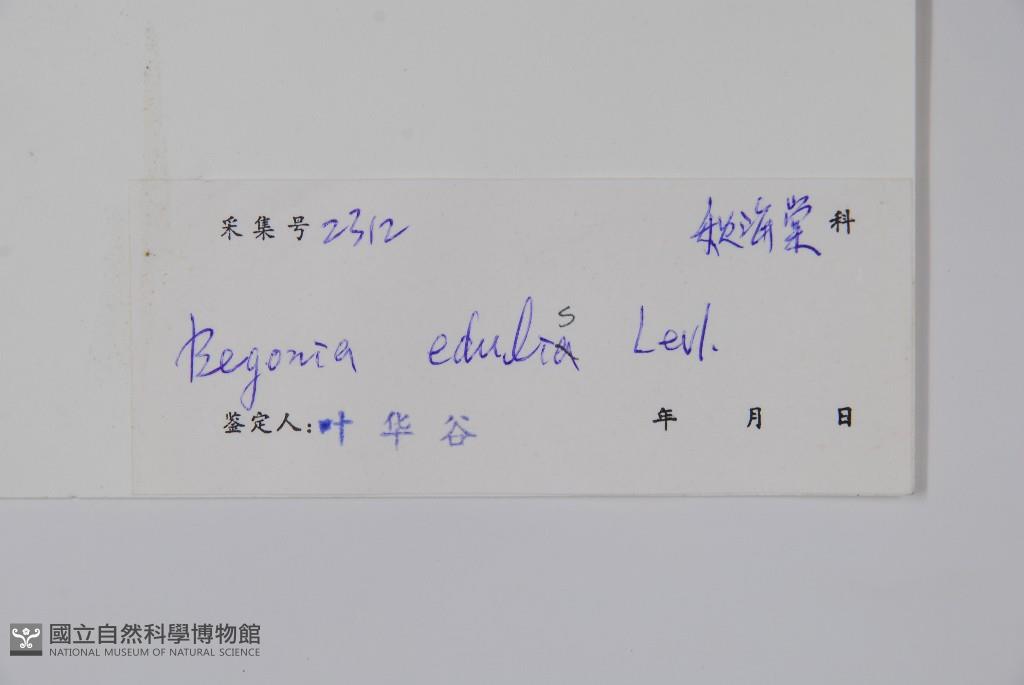 采集号 2312 秋海棠科
Begonia edulis Levl.
鉴定人: 叶华谷 年 月 日
國立自然科學博物館
NATIONAL MUSEUM OF NATURAL SCIENCE